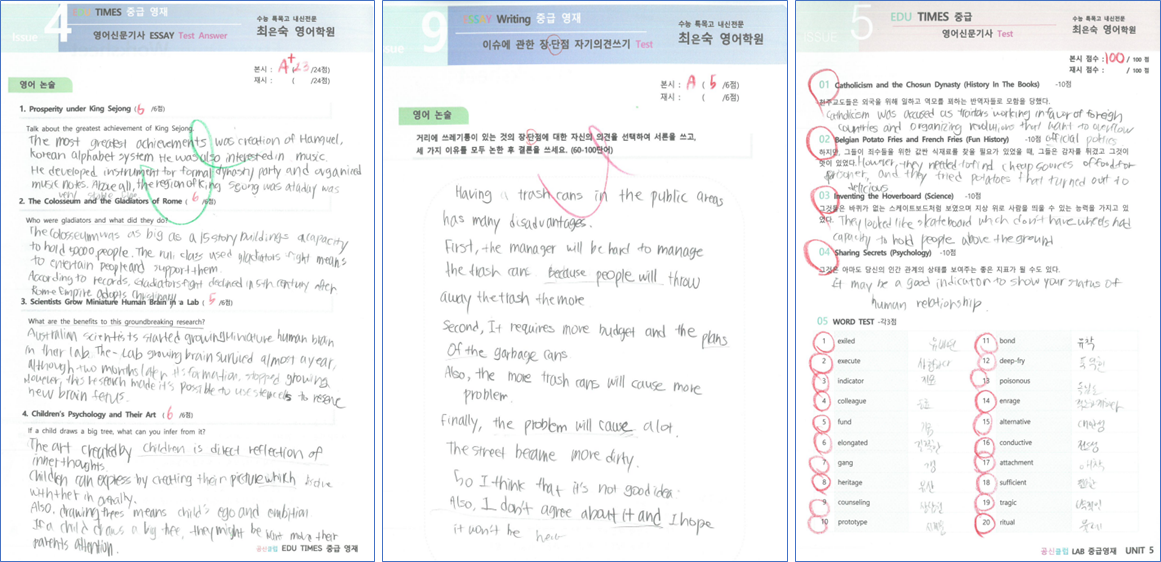 ISSUE 4
EDU TIMES 중급 영재
영어신문기사 ESSAY Test Answer
수능 특목고 내신전문
최은숙 영어학원
본시 : A+ ( 23 /24점)
재시 : ( /24점)
영어 논술
1. Prosperity under King Sejong ( 6 /6점)
Talk about the greatest achievement of King Sejong.
The most greatest achievements was creation of Hanguel,
Korean alphabet system He was also interested in music.
He developed instrument for formal dynasty party and organized
music notes. Above all, the region of King Sejong was a today was
2. The Colosseum and the Gladiators of Rome ( 6 /6점)
Who were gladiators and what did they do?
The colosseum was as big as a 15 story buildings a capacity
to hold 50000 people. The rull class used gladiators fight means
to entertain people and support them.
According to records, Gladiators fight declined in 5th century after
Rome Empire adopts christianity
3. Scientists Grow Miniature Human Brain in a Lab ( 5 /6점)
What are the benefits to this groundbreaking research?
Australian scientists started growing miniature human brain
in their lab. The Lab growing brain survived almost a year,
Although two months later it's formation, stopped growing
However, this research made it's possible to use stem cells to
new brain fetus.
4. Children's Psychology and Their Art ( 6 /6점)
If a child draws a big tree, what can you infer from it?
The art created by children is direct reflection of
inner thoughts
Children can express by creating their picture which
Also, drawing trees means child's ego and ambition
If a child draws a big tree, they might be want more their
parents attention.
공신클럽 EDU TIMES 중급 영재
ISSUE 9
ESSAY Writing 중급 영재
이슈에 관한 장단점 자기의견쓰기 Test
수능 특목고 내신전문
최은숙 영어학원
본시 : A ( 5 /6점)
재시 : ( /6점)
영어 논술
거리에 쓰레기통이 있는 것의 장단점에 대한 자신의 의견을 선택하여 서론을 쓰고,
세 가지 이유를 모두 논한 후 결론을 쓰세요. (60-100단어)
Having a trash cans in the public areas
has many disadvantages.
First, the manager will be hard to manage
the trash cans because people will throw
away the trash the more
Second, It requires more budget and the plans
Of the garbage cans
Also, the more trash cans will cause more
problem.
Finally, the problem will cause a lot.
The street became more dirty.
So I think that it's not good idea.
Also, I don't agree about it and I hope
it won't be
ISSUE 5
EDU TIMES 중급
영어신문기사 Test
수능 특목고 내신전문
최은숙 영어학원
본시 점수 : 100 / 100 점
재시 점수 : / 100 점
01 Catholicism and the Chosun Dynasty (History In The Books) -10점
천주교도들은 외국을 위해 일하고 역모를 꾀하는 반역자들로 모함을 당했다.
Catholicism was accused as traitors working in favor of foreign
countries and organizing revolutions that want to overflow
official politics
02 Belgian Potato Fries and French Fries (Fun History) -10점
하지만, 그들이 죄수들을 위한 값싼 식재료를 찾을 필요가 있었을 때, 그들은 감자를 튀겼고 그것이
맛이 있었다. However, they needed to find cheap sources of food for
prisoner, and they tried potatoes that turned out to
delicious
03 Inventing the Hoverboard (Science) -10점
그것들은 바퀴가 없는 스케이트보드처럼 보였으며 지상 위로 사람을 띄울 수 있는 능력을 가지고 있
었다. They looked like skateboard which don't have wheels had
capacity to hold people above the ground
04 Sharing Secrets (Psychology) -10점
그것은 아마도 당신의 인간 관계의 상태를 보여주는 좋은 지표가 될 수도 있다.
It may be a good indicator to show your status of
human relationship.
05 WORD TEST -각3점
1 exiled
11 bond 유착
2 execute
12 deep-fry
3 indicator 지표
13 poisonous
4 colleague 동료
14 enrage
5 fund 기금
15 alternative
6 elongated
16 conductive 전도성
7 gang
17 attachment 애착
8 heritage
18 sufficient
9 counseling
19 tragic
10 prototype
20 ritual
공신클럽 LAB 중급영재 UNIT 5